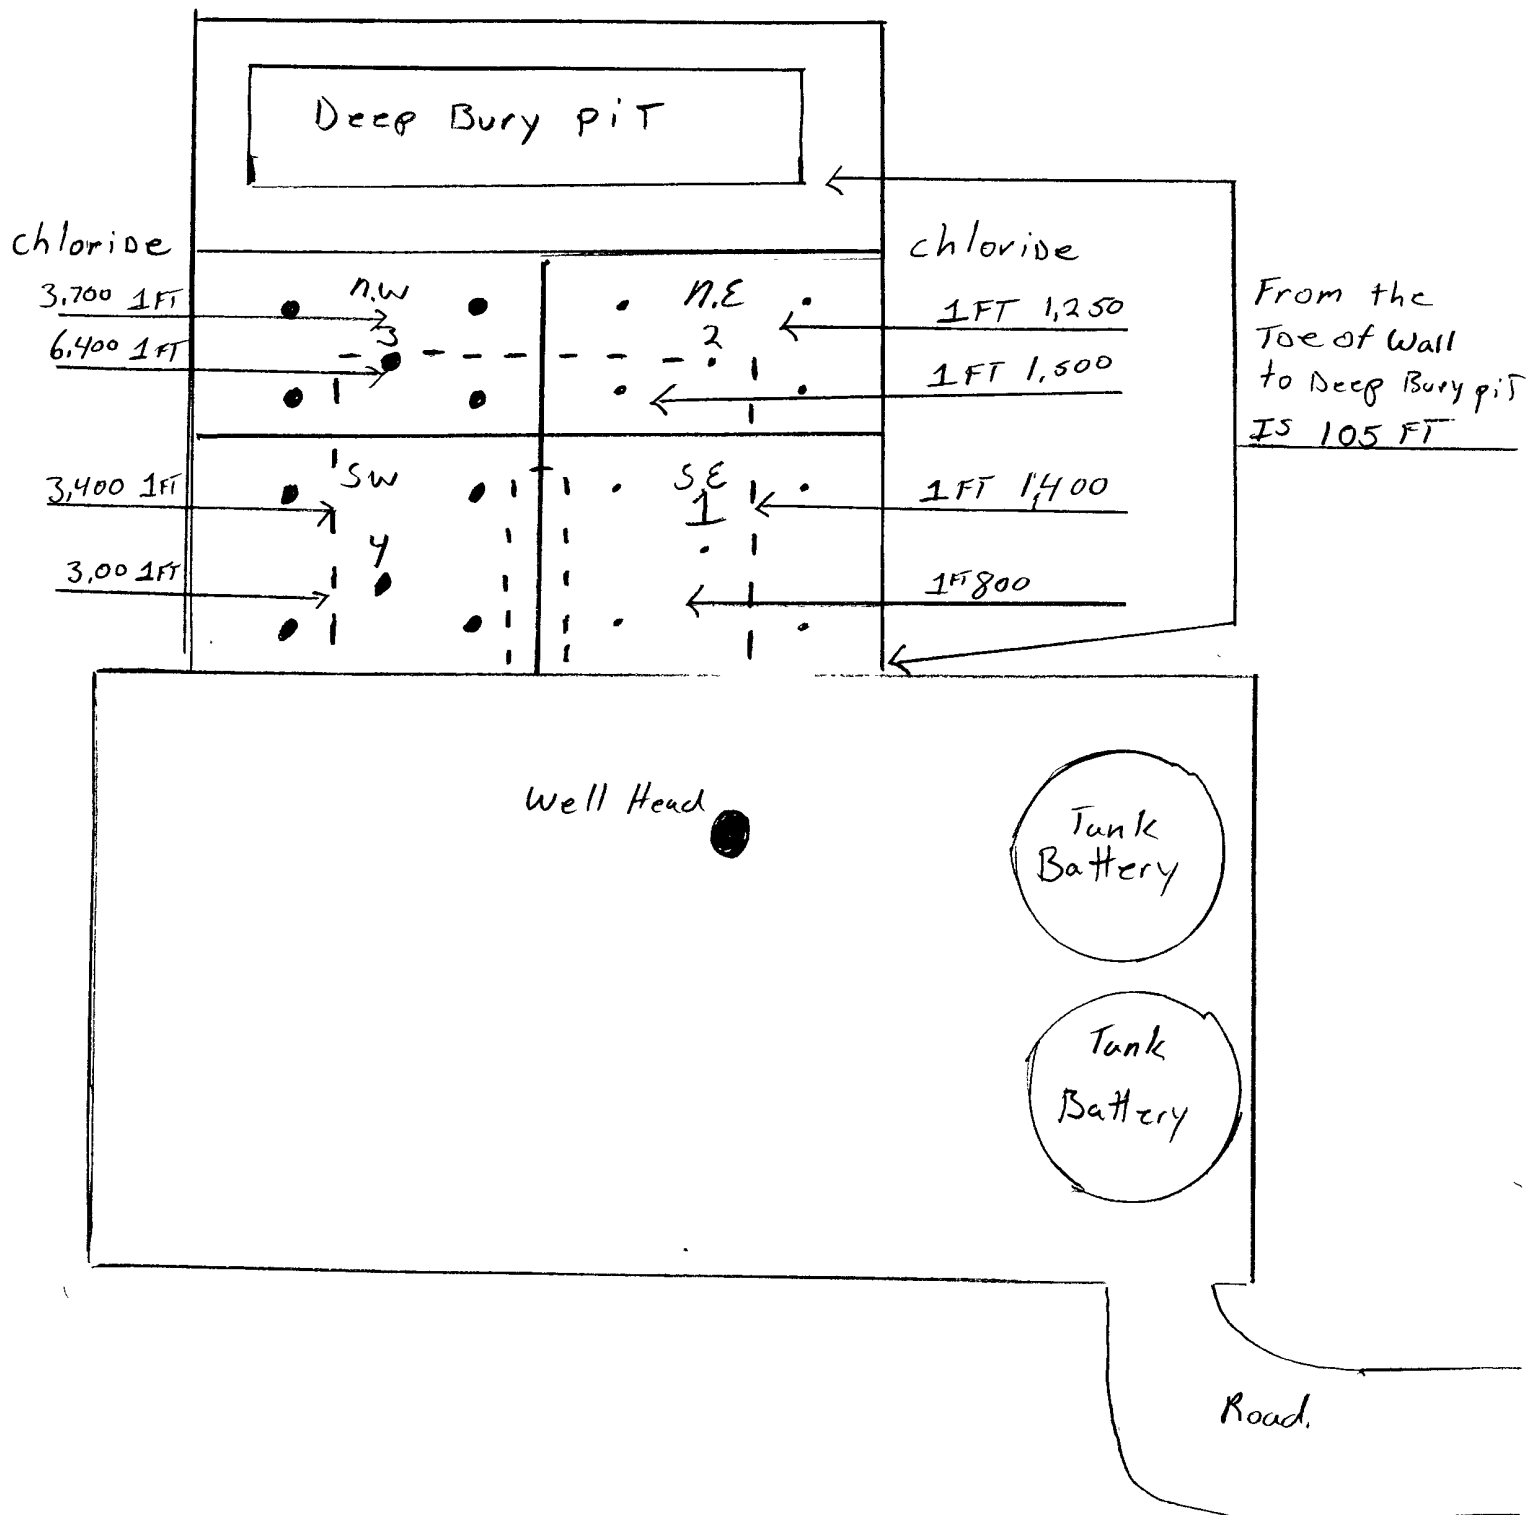 Deep Bury piT
chloriDe
3,700 1FT
6,400 1FT
3,400 1FT
3,00 1FT
n.w
3
N.E
2
SW
4
S.E
1
chloriDe
1FT 1,250
1FT 1,500
1FT 1,400
1FT 800
From the
Toe of Wall
to Deep Bury piT
IS 105 FT
Well Head
Tank
Battery
Tank
Battery
Road.